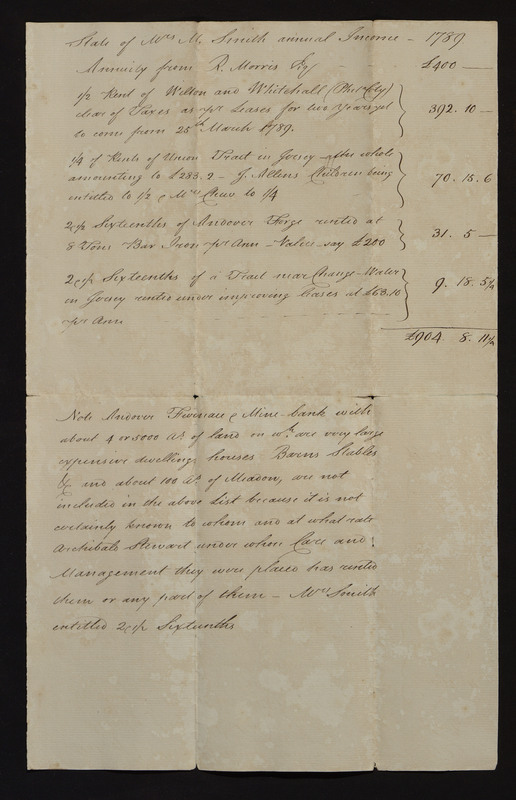 State of Mrs M. Smith annual Income - 1789
Annuity from R. Morris Esq £400 —
1/2 Rent of Wilton and Whitehall
clear of Taxes as pr Leases for two Years yet 392. 10 —
to come from 25th March 1789.
1/4 of Rents of Union Tract in Jersey - the whole
amounting to £283. 2 - J. Allens Children being 70. 15. 6
entitled to 1/2 & Mrs Chew to 1/4
2 1/2 Sixteenths of Andover Forge rented at
8 Tons Bar Iron pr Ann - Value say £200 31. 5 —
2 1/2 Sixteenths of a Tract near Change-Water
in Jersey rented under improving Leases at £63.10 9. 18. 5 1/4
pr Ann
£904. 8. 11 1/4
Note Andover Furnace & Mine-bank with
about 4 or 5000 As of land on wh are very large
expensive dwelling houses Barns Stables
&c and about 100 As of Meadow, are not
included in the above List because it is not
certainly known to whom and at what rate
Archibald Stewart under whose Care and
Management they were placed has rented
them or any part of them - Mrs Smith
entitled 2 1/2 Sixteenths